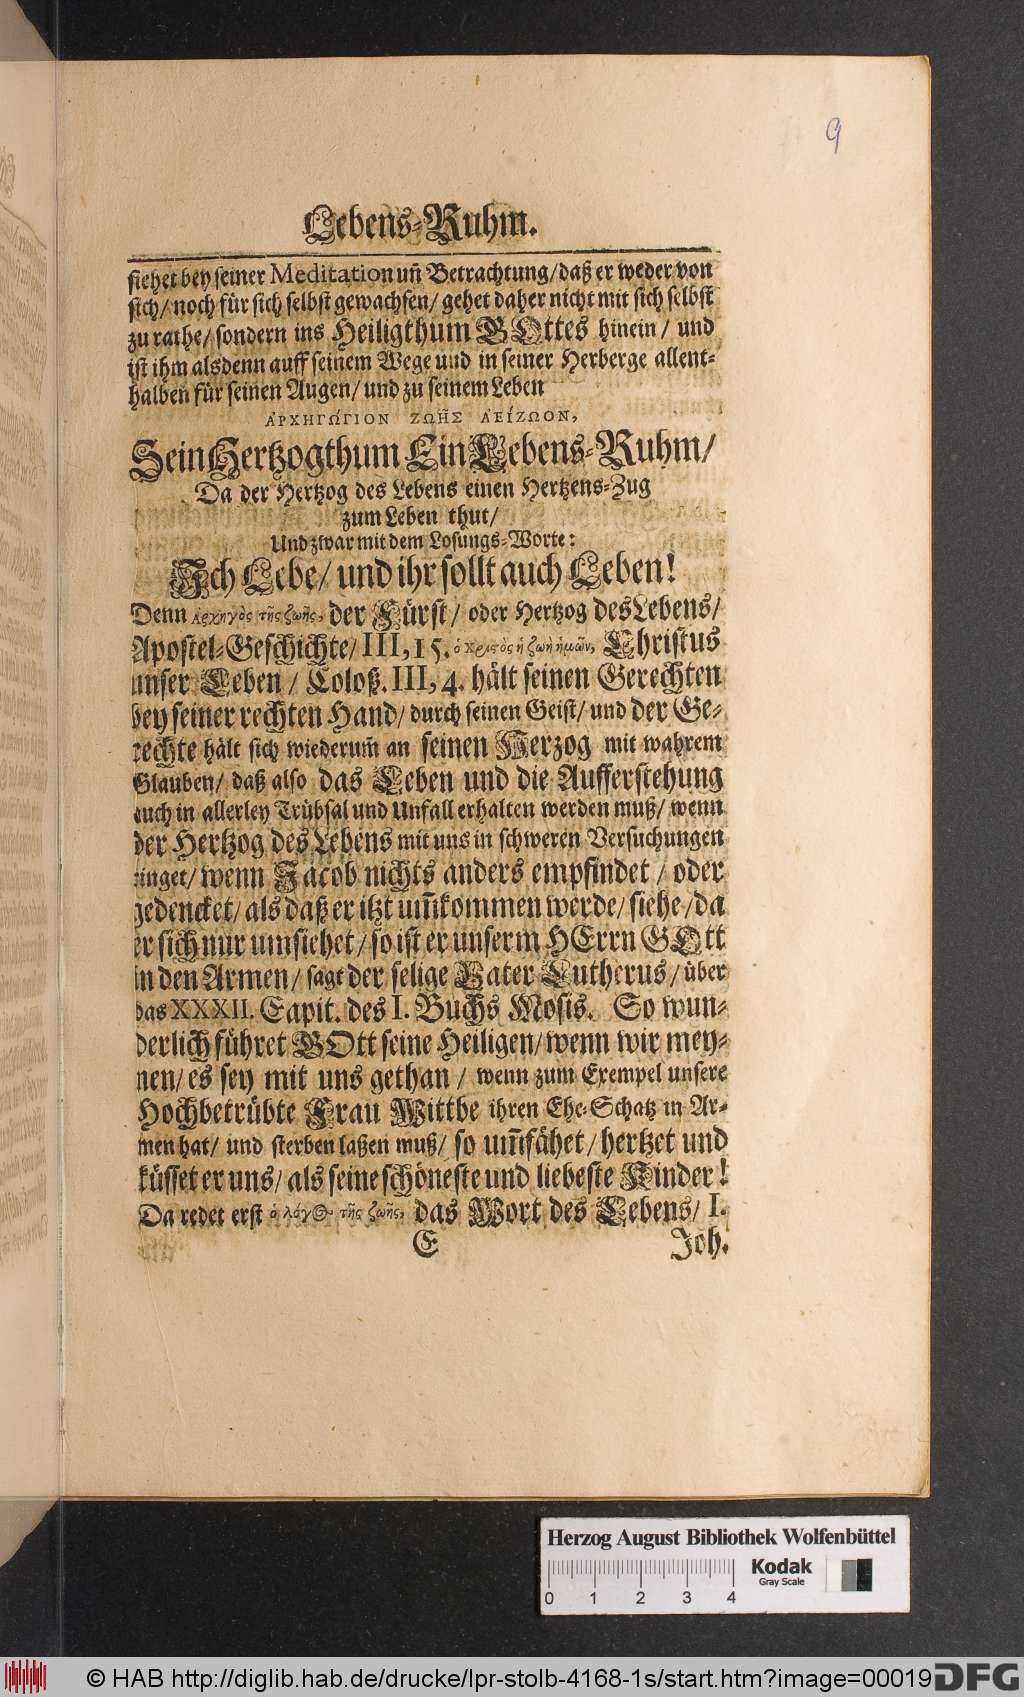 9
Lebens-Ruhm.
siehet bey seiner Meditation uñ Betrachtung/ daß er weder von
sich/ noch für sich selbst gewachsen/ gehet daher nicht mit sich selbst
zu rathe/ sondern ins Heiligthum GOttes hinein/ und
ist ihm alsdenn auff seinem Wege und in seiner Herberge allent-
halben für seinen Augen/ und zu seinem Leben
ἈΡΧΗΓΏΓΙΟΝ ΖΩΗ͂Σ ἈΕΊΖΩΟΝ,
Sein Hertzogthum Ein Lebens-Ruhm/
Da der Hertzog des Lebens einen Hertzens-Zug
zum Leben thut/
Und zwar mit dem Losungs-Worte:
Ich Lebe/ und ihr sollt auch Leben!
Denn Ἀρχηγὸς τῆς ζωῆς, der Fürst/ oder Hertzog des Lebens/
Apostel-Geschichte/ III, 15. ὁ Χριστὸς ἡ ζωὴ ἡμῶν, Christus
unser Leben / Coloß. III, 4. hält seinen Gerechten
bey seiner rechten Hand/ durch seinen Geist/ und der Ge-
rechte hält sich wiederum̃ an seinen Herzog mit wahrem
Glauben/ daß also das Leben und die Aufferstehung
auch in allerley Trübsal und Unfall erhalten werden muß/ wenn
der Hertzog des Lebens mit uns in schweren Versuchungen
ringet/ wenn Jacob nichts anders empfindet / oder
gedencket/ als daß er itzt um̃kommen werde/ siehe/ da
er sich nur umsiehet/ so ist er unserm HErrn GOtt
in den Armen/ sagt der selige Vater Lutherus/ über
das XXXII. Capit. des I. Buchs Mosis. So wun-
derlich führet GOtt seine Heiligen/ wenn wir mey-
nen/ es sey mit uns gethan / wenn zum Exempel unsere
Hochbetrübte Frau Wittbe ihren Ehe-Schatz in Ar-
men hat/ und sterben laßen muß/ so um̃fähet/ hertzet und
küsset er uns/ als seine schöneste und liebeste Kinder!
Da redet erst ὁ λόγος τῆς ζωῆς, das Wort des Lebens/ I.
E Joh.
Herzog August Bibliothek Wolfenbüttel
Kodak
Gray Scale
0 1 2 3 4
© HAB http://diglib.hab.de/drucke/lpr-stolb-4168-1s/start.htm?image=00019
DFG